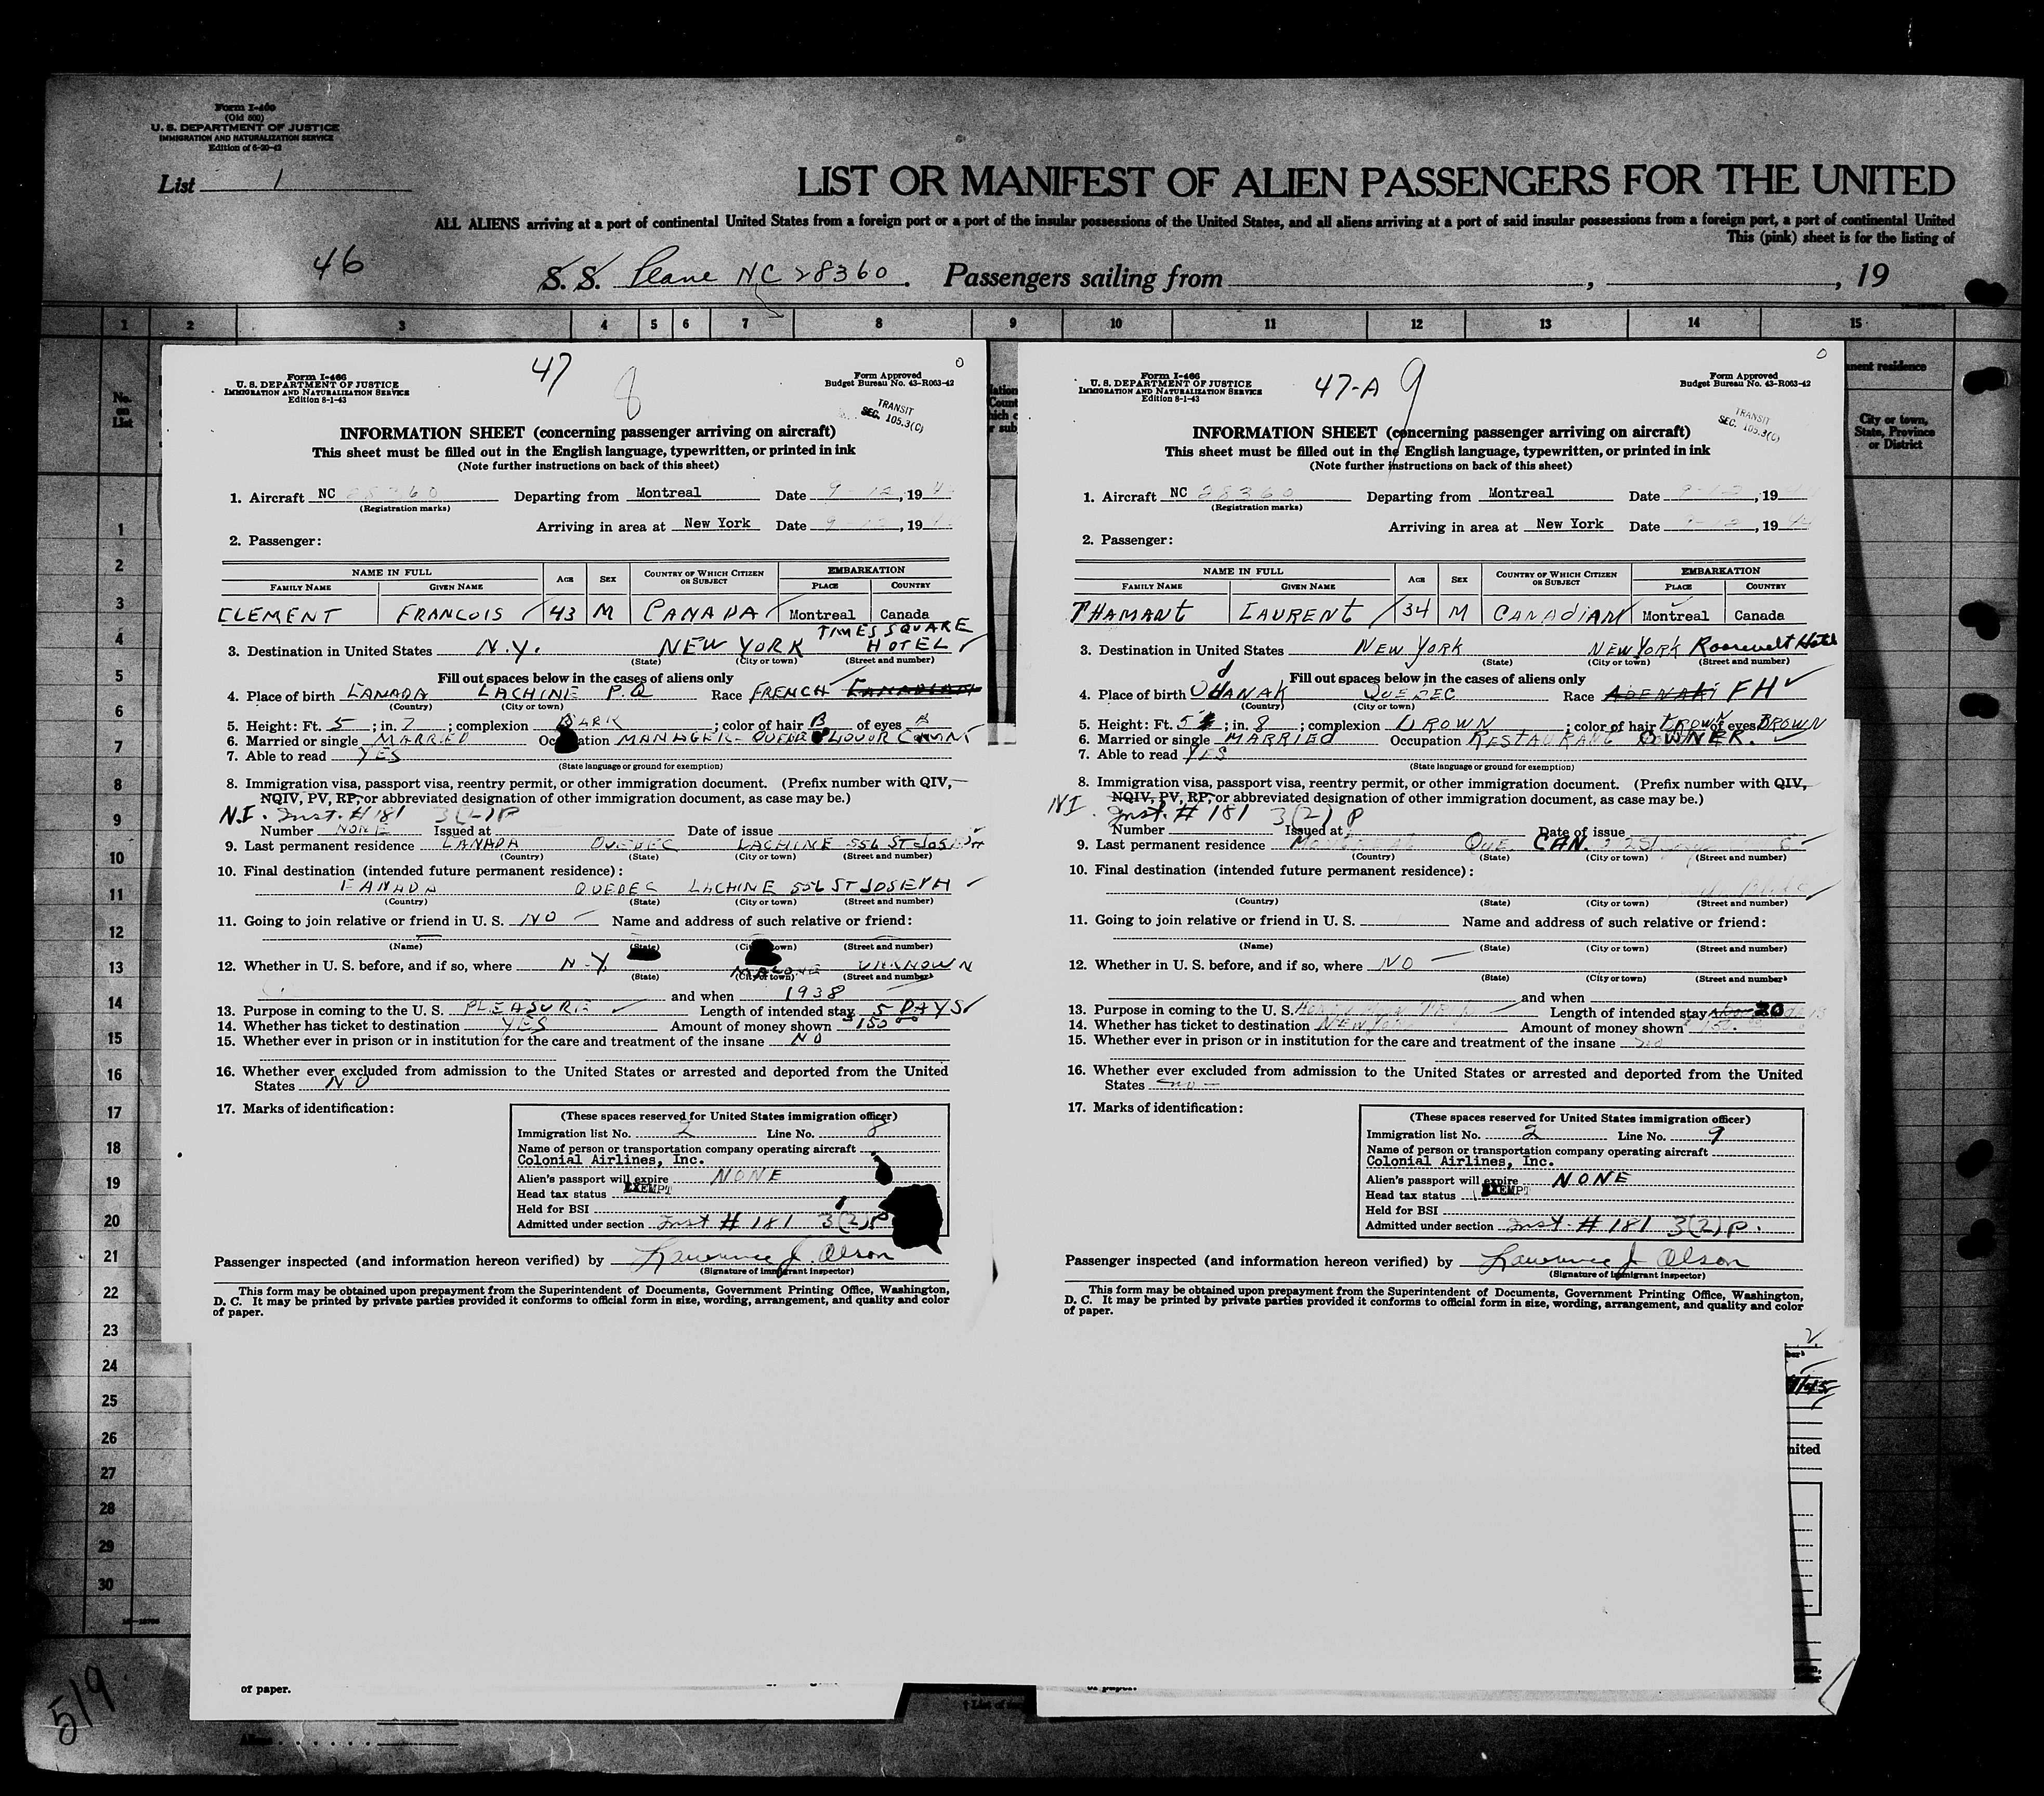 Form I-460
(Old 500)
U. S. DEPARTMENT OF JUSTICE
IMMIGRATION AND NATURALIZATION SERVICE
Edition of 6-20-42
List 1
LIST OR MANIFEST OF ALIEN PASSENGERS FOR THE UNITED
ALL ALIENS arriving at a port of continental United States from a foreign port or a port of the insular possessions of the United States, and all aliens arriving at a port of said insular possessions from a foreign port, a port of continental United
This (pink) sheet is for the listing of
46
S. S. Plane NC 28360. Passengers sailing from , , 19
1 2 3 4 5 6 7 8 9 10 11 12 13 14 15
No. on List
nent residence
City or town, State, Province or District
1
2
3
4
5
6
7
8
9
10
11
12
13
14
15
16
17
18
19
20
21
22
23
24
25
26
27
28
29
30
519
47
8
0
Form I-466
U. S. DEPARTMENT OF JUSTICE
IMMIGRATION AND NATURALIZATION SERVICE
Edition 8-1-43
Form Approved
Budget Bureau No. 43-R063-42
TRANSIT
SEC. 105.3(C)
INFORMATION SHEET (concerning passenger arriving on aircraft)
This sheet must be filled out in the English language, typewritten, or printed in ink
(Note further instructions on back of this sheet)
1. Aircraft NC 28360 Departing from Montreal Date 9-12, 19
(Registration marks)
Arriving in area at New York Date 9-12, 19
2. Passenger:
NAME IN FULL AGE SEX COUNTRY OF WHICH CITIZEN OR SUBJECT EMBARKATION
FAMILY NAME GIVEN NAME PLACE COUNTRY
CLEMENT FRANCOIS 43 M CANADA Montreal Canada
TIMES SQUARE
3. Destination in United States N.Y. NEW YORK HOTEL
(State) (City or town) (Street and number)
Fill out spaces below in the cases of aliens only
4. Place of birth CANADA LACHINE P.Q Race FRENCH CANADIAN
(Country) (City or town)
5. Height: Ft. 5; in. 7; complexion DARK; color of hair B of eyes B
6. Married or single MARRIED Occupation MANAGER-QUEBEC LIQUOR COMM
7. Able to read YES
(State language or ground for exemption)
8. Immigration visa, passport visa, reentry permit, or other immigration document. (Prefix number with QIV,
NQIV, PV, RP, or abbreviated designation of other immigration document, as case may be.)
N.I. Inst. # 181 3(2)P
Number NONE Issued at Date of issue
9. Last permanent residence CANADA QUEBEC LACHINE 556 ST JOSEPH
(Country) (State) (City or town) (Street and number)
10. Final destination (intended future permanent residence):
CANADA QUEBEC LACHINE 556 ST JOSEPH
(Country) (State) (City or town) (Street and number)
11. Going to join relative or friend in U. S. NO Name and address of such relative or friend:
(Name) (State) (City or town) (Street and number)
12. Whether in U. S. before, and if so, where N.Y MALONE UNKNOWN
(State) (City or town) (Street and number)
and when 1938
13. Purpose in coming to the U. S. PLEASURE Length of intended stay 5 DAYS
14. Whether has ticket to destination YES Amount of money shown $150.00
15. Whether ever in prison or in institution for the care and treatment of the insane NO
16. Whether ever excluded from admission to the United States or arrested and deported from the United
States NO
17. Marks of identification:
(These spaces reserved for United States immigration officer)
Immigration list No. 2 Line No. 8
Name of person or transportation company operating aircraft
Colonial Airlines, Inc.
Alien's passport will expire NONE
Head tax status EXEMPT
Held for BSI
Admitted under section Inst # 181 3(2)P
Passenger inspected (and information hereon verified) by Lawrence J. Olson
(Signature of immigrant inspector)
This form may be obtained upon prepayment from the Superintendent of Documents, Government Printing Office, Washington,
D. C. It may be printed by private parties provided it conforms to official form in size, wording, arrangement, and quality and color
of paper.
of paper.
47-A
9
0
Form I-466
U. S. DEPARTMENT OF JUSTICE
IMMIGRATION AND NATURALIZATION SERVICE
Edition 8-1-43
Form Approved
Budget Bureau No. 43-R063-42
TRANSIT
SEC. 105.3(C)
INFORMATION SHEET (concerning passenger arriving on aircraft)
This sheet must be filled out in the English language, typewritten, or printed in ink
(Note further instructions on back of this sheet)
1. Aircraft NC 28360 Departing from Montreal Date 9-12, 19
(Registration marks)
Arriving in area at New York Date 9-12, 19
2. Passenger:
NAME IN FULL AGE SEX COUNTRY OF WHICH CITIZEN OR SUBJECT EMBARKATION
FAMILY NAME GIVEN NAME PLACE COUNTRY
THAMANT LAURENT 34 M CANADIAN Montreal Canada
3. Destination in United States NEW YORK NEW YORK Roosevelt Hotel
(State) (City or town) (Street and number)
Fill out spaces below in the cases of aliens only
4. Place of birth ODANAK QUEBEC Race ABENAKI FH
(Country) (City or town)
5. Height: Ft. 5; in. 8; complexion BROWN; color of hair BROWN of eyes BROWN
6. Married or single MARRIED Occupation RESTAURANT OWNER.
7. Able to read YES
(State language or ground for exemption)
8. Immigration visa, passport visa, reentry permit, or other immigration document. (Prefix number with QIV,
NQIV, PV, RP, or abbreviated designation of other immigration document, as case may be.)
N.I. Inst. # 181 3(2) P
Number Issued at Date of issue
9. Last permanent residence MONTREAL QUE. CAN.
(Country) (State) (City or town) (Street and number)
10. Final destination (intended future permanent residence):
(Country) (State) (City or town) (Street and number)
11. Going to join relative or friend in U. S. Name and address of such relative or friend:
(Name) (State) (City or town) (Street and number)
12. Whether in U. S. before, and if so, where NO
(State) (City or town) (Street and number)
and when
13. Purpose in coming to the U. S. Length of intended stay 20
14. Whether has ticket to destination NEW YORK Amount of money shown $150.
15. Whether ever in prison or in institution for the care and treatment of the insane no
16. Whether ever excluded from admission to the United States or arrested and deported from the United
States no
17. Marks of identification:
(These spaces reserved for United States immigration officer)
Immigration list No. 2 Line No. 9
Name of person or transportation company operating aircraft
Colonial Airlines, Inc.
Alien's passport will expire NONE
Head tax status EXEMPT
Held for BSI
Admitted under section Inst # 181 3(2)P.
Passenger inspected (and information hereon verified) by Lawrence J Olson
(Signature of immigrant inspector)
This form may be obtained upon prepayment from the Superintendent of Documents, Government Printing Office, Washington,
D. C. It may be printed by private parties provided it conforms to official form in size, wording, arrangement, and quality and color
of paper.
nited